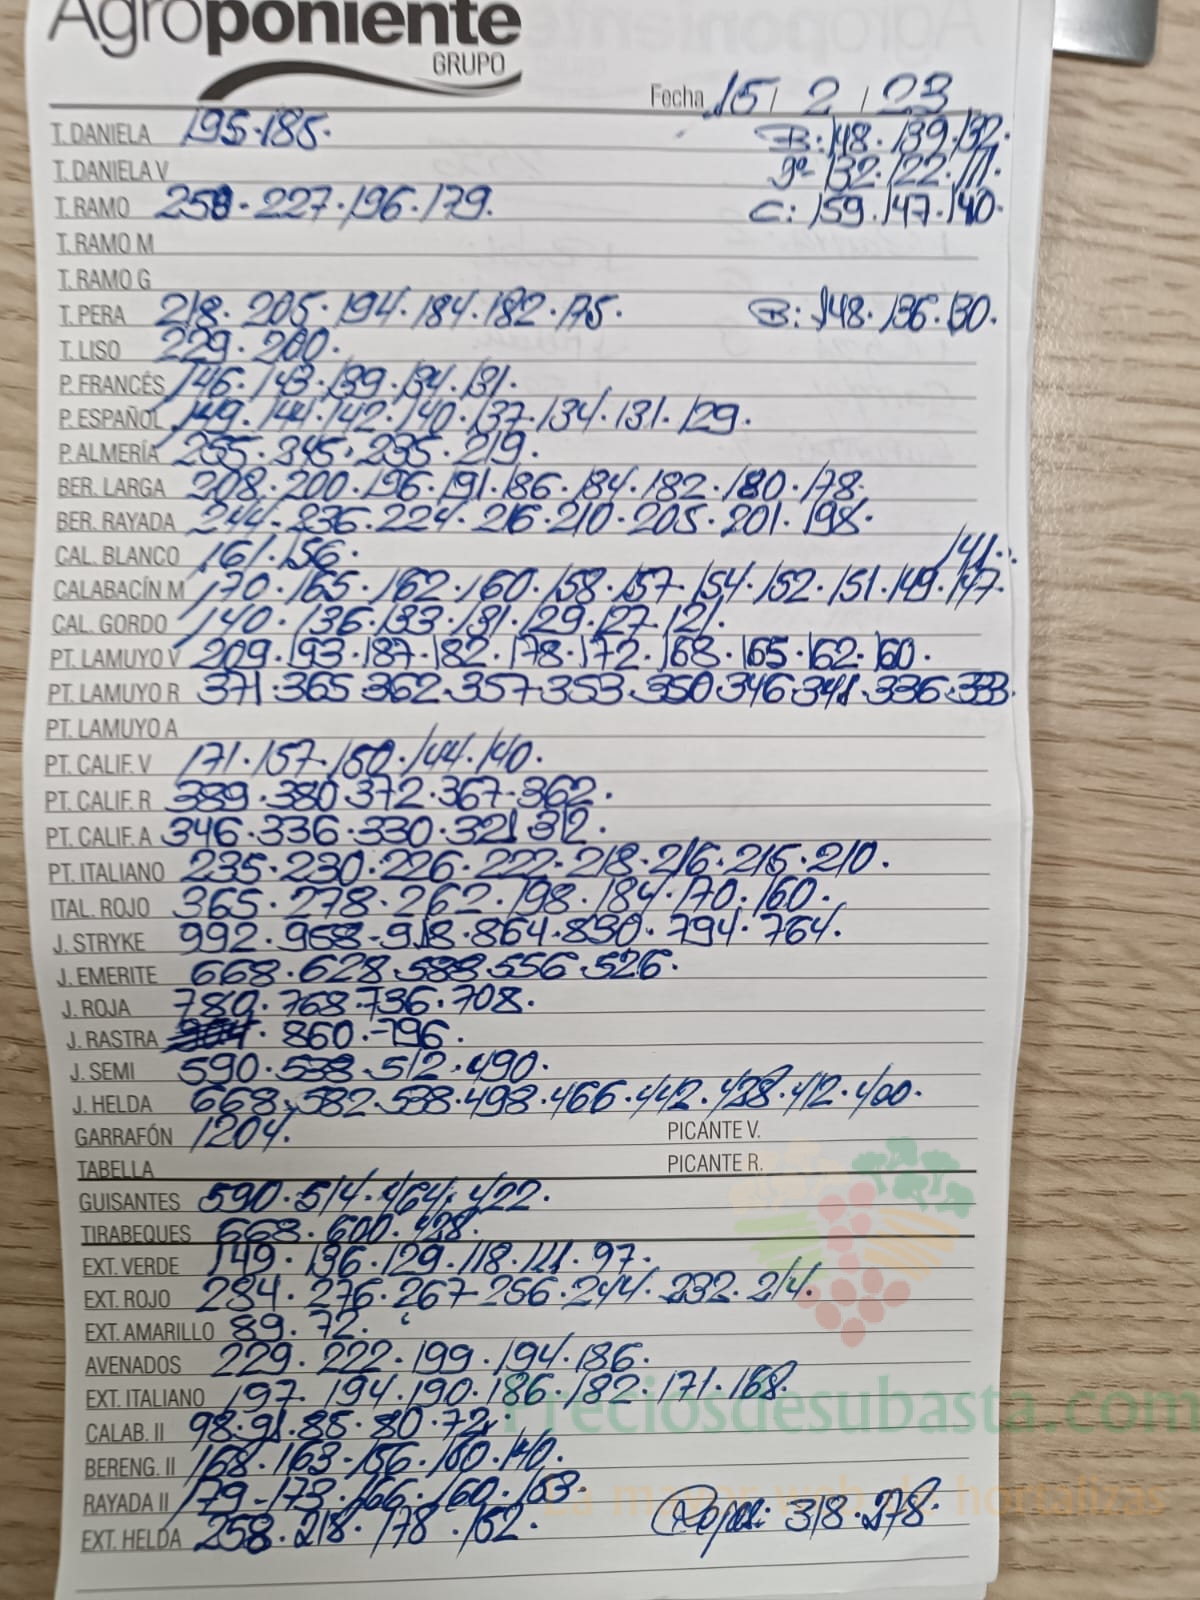 Agroponiente
GRUPO
Fecha 15 / 2 / 23
T. DANIELA 195·185· B: 148·139·132·
T. DANIELA V 9ª 132·122·111·
T. RAMO 258·227·196·179. C: 159·147·140·
T. RAMO M
T. RAMO G
T. PERA 218·205·194·184·182·175. B: 148·136·130·
T. LISO 229·200·
P. FRANCÉS 146·143·139·134·131·
P. ESPAÑOL 149·144·142·140·137·134·131·129·
P. ALMERÍA 255·245·235·219·
BER. LARGA 208·200·196·191·186·184·182·180·178·
BER. RAYADA 244·236·224·216·210·205·201·198·
CAL. BLANCO 161·156· 141·
CALABACÍN M 170·165·162·160·158·157·154·152·151·149·147·
CAL. GORDO 140·136·133·131·129·127·121·
PT. LAMUYO V 209·193·187·182·178·172·168·165·162·160·
PT. LAMUYO R 371·365·362·357·353·350·346·341·336·333·
PT. LAMUYO A
PT. CALIF. V 171·157·150·144·140·
PT. CALIF. R 389·380·372·367·362·
PT. CALIF. A 346·336·330·321·312·
PT. ITALIANO 235·230·226·222·218·216·215·210·
ITAL. ROJO 365·278·262·198·184·170·160·
J. STRYKE 992·958·918·864·830·794·764·
J. EMERITE 668·628·588·556·526·
J. ROJA 780·768·736·708·
J. RASTRA 860·796·
J. SEMI 590·538·512·490·
J. HELDA 668·582·538·498·466·442·428·412·400·
GARRAFÓN 1204. PICANTE V.
TABELLA PICANTE R.
GUISANTES 590·514·464·422·
TIRABEQUES 668·600·428·
EXT. VERDE 149·136·129·118·111·97·
EXT. ROJO 284·276·267·256·244·232·214·
EXT. AMARILLO 89·72·
AVENADOS 229·222·199·194·186·
EXT. ITALIANO 197·194·190·186·182·171·168·
Preciosdesubasta.com
CALAB. II 98·91·85·80·72·
BERENG. II 168·163·156·150·140·
RAYADA II 179·173·166·160·153·
hortalizas
EXT. HELDA 258·218·178·152· Rojas: 318·278·